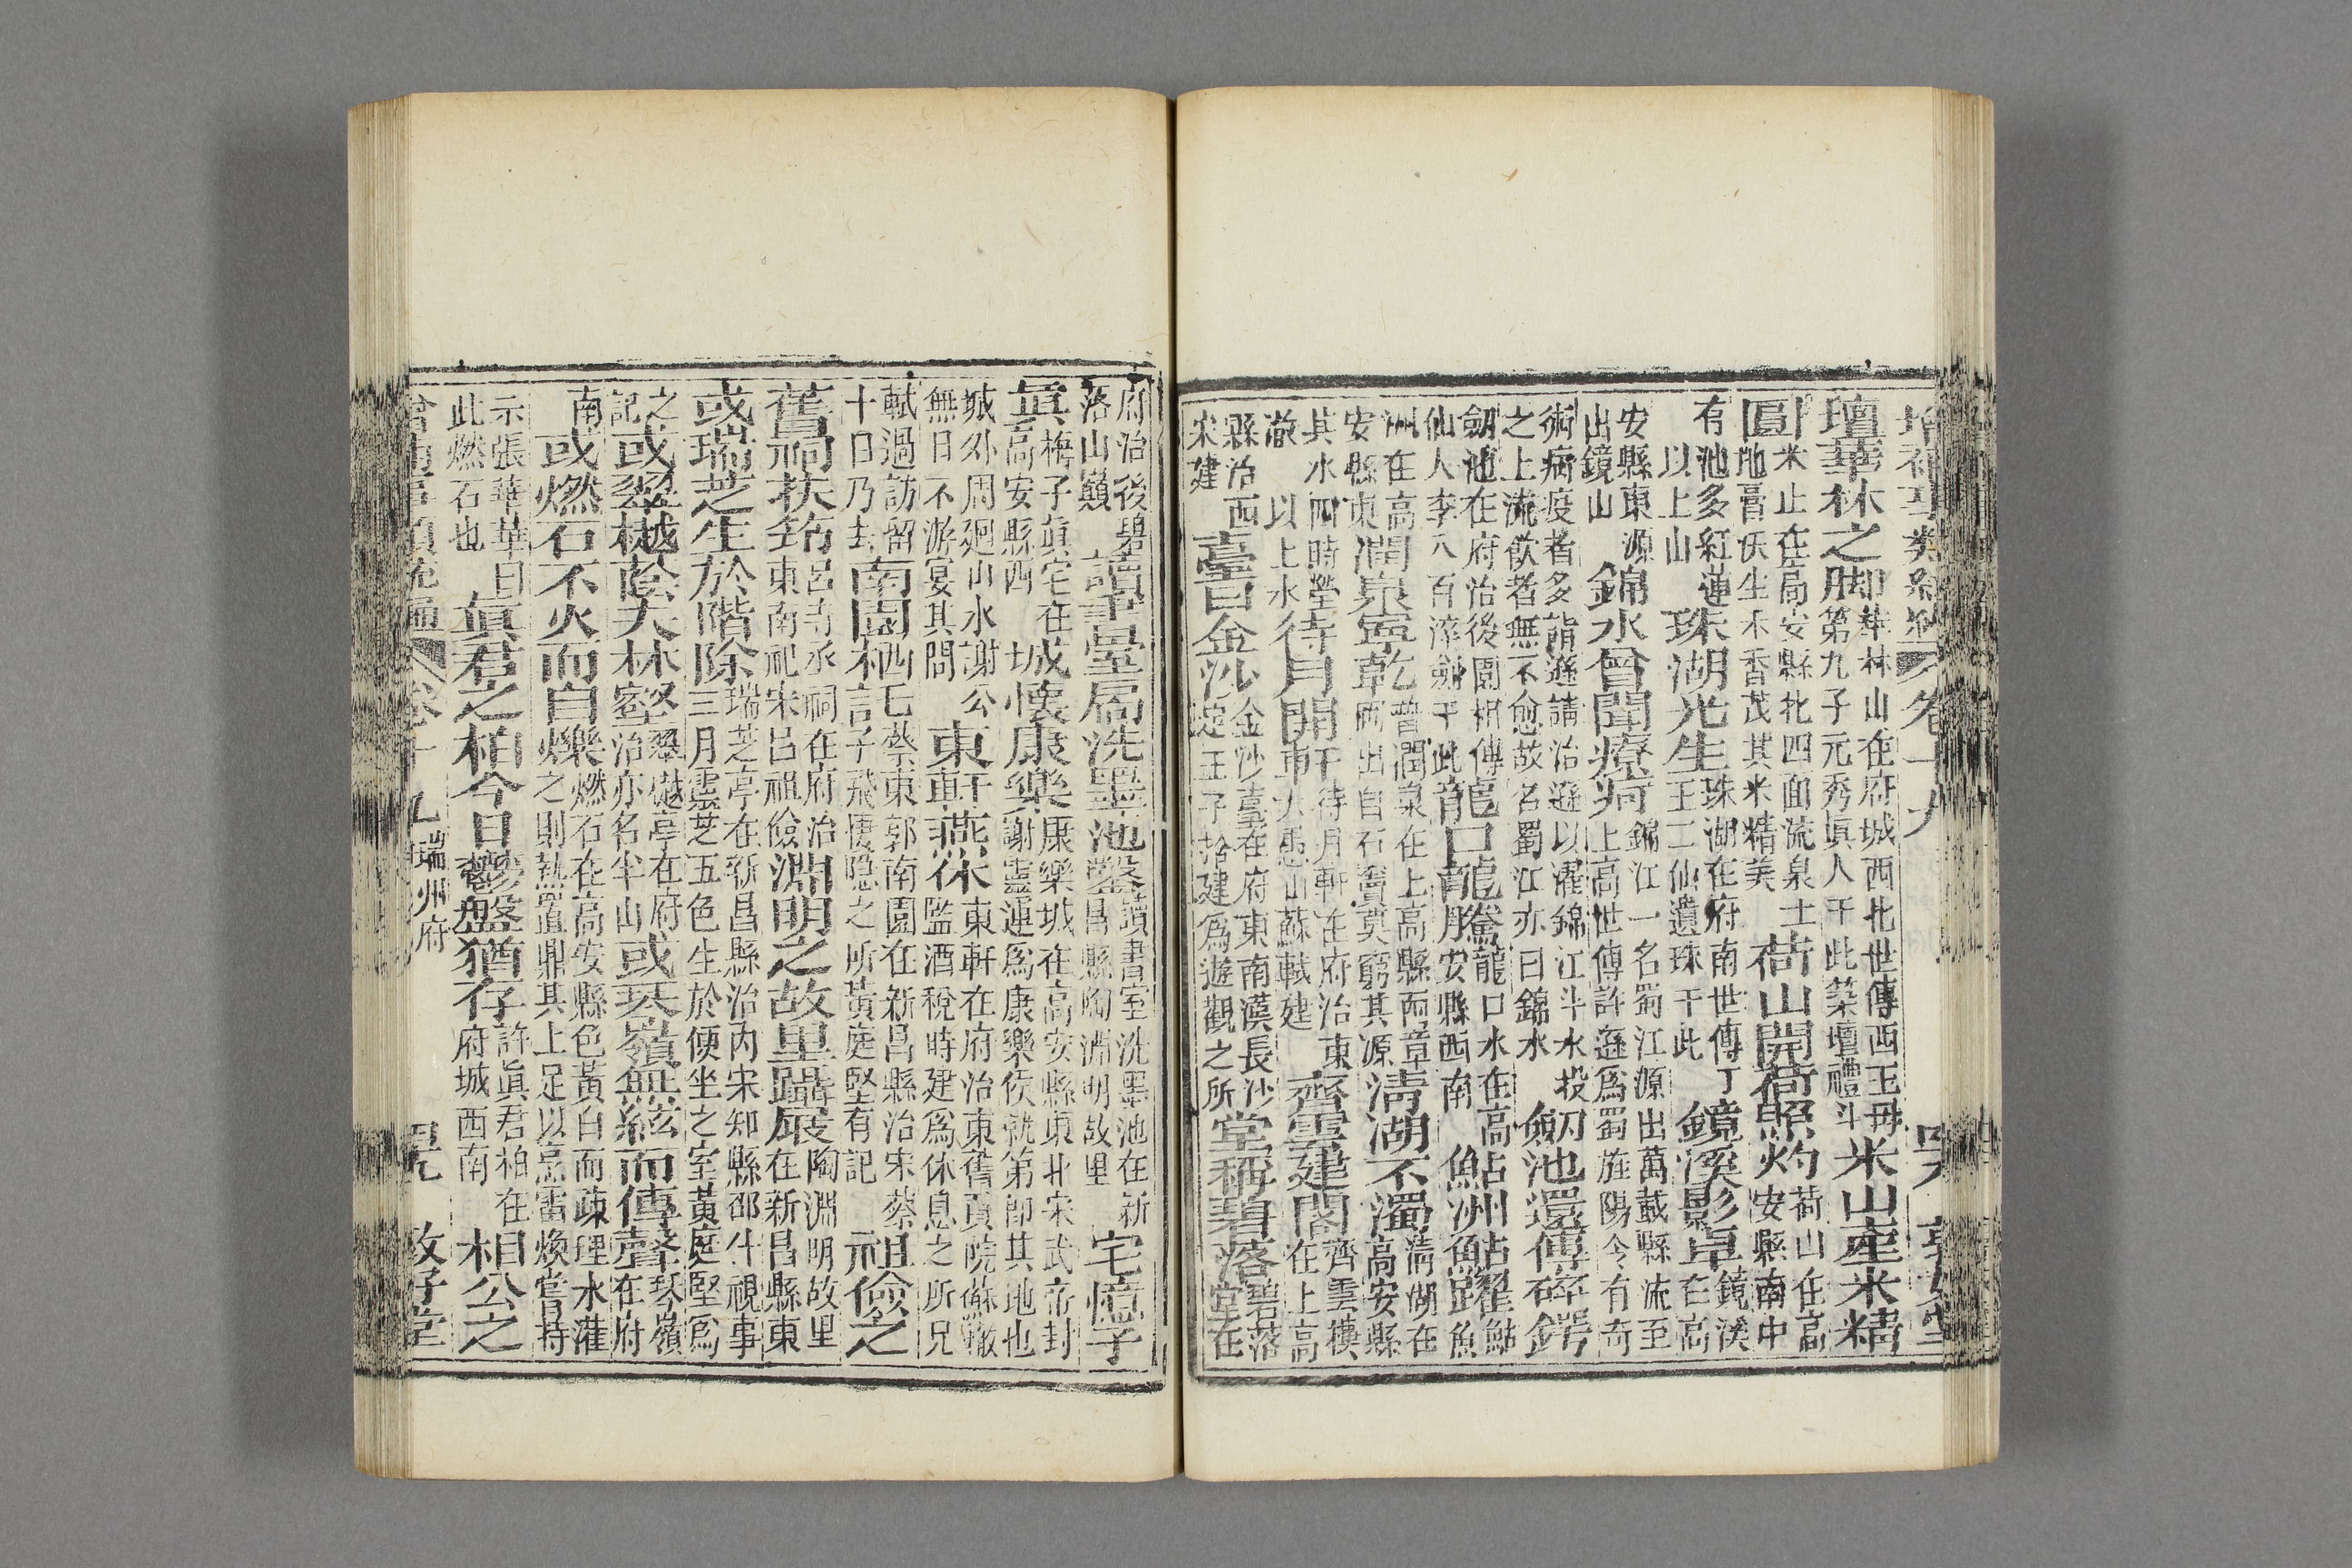 增補事類統編 卷十九 罕 敦好堂
壇華林之脚華林山在府城西北世傳西王母第九子元秀眞人于此築壇禮斗米山產米精
圓米山在高安縣北四面流泉土地膏沃生禾香茂其米精美荷山開荷照灼荷山在高安縣南中
有池多紅蓮以上山珠湖光生珠湖在府南世傳丁王二仙遺珠于此鏡溪影卓鏡溪在高
安縣東源出鏡山錦水曾聞療疴錦江一名蜀江源出萬載縣流至上高世傳許遜爲蜀旌陽令有奇
術病疫者多詣遜請治遜以濯錦江斗水投之上流飲者無不愈故名蜀江亦曰錦水劒池還傳碎鍔
劒池在府治後圃相傳仙人李八百淬劒于此龍口龍騰龍口水在高安縣西南鮎洲鮎躍鮎魚
洲在高安縣東潤泉寧乾普潤泉在上高縣南章闕出自石竇莫窮其源淸湖不濁淸湖在高安縣
其水四時瑩澈以上水待月開軒待月軒在府治東大愚山蘇軾建齊雲建閣齊雲樓在上高
縣治西宋建臺曰金沙金沙臺在府東南漢長沙定王子拾建爲遊觀之所堂稱碧落碧落堂在
府治後碧落山巔讀書臺局洗墨池鑿讀書室洗墨池在新昌縣陶淵明故里宅憶子
眞梅子眞宅在高安縣西城懷康樂康樂城在高安縣東北宋武帝封謝靈運爲康樂侯就第卽其地也
城外周迴山水謝公無日不游宴其間東軒燕休東軒在府治東舊貢院蘇轍監酒稅時建爲休息之所兄
軾過訪留十日乃去南園栖託蔡東郭南園在新昌縣治宋蔡子飛棲隱之所黃庭堅有記祖儉之
舊祠扶筇呂寺丞祠在府治東南祀宋呂祖儉淵明之故里躡屐陶淵明故里在新昌縣東
或瑞芝生於階除瑞芝亭在新昌縣治內宋知縣邵升視事三月靈芝五色生於便坐之室黃庭堅爲
之記或翠樾蔭夫林壑翠樾亭在府治亦名半山或琴嶺無絃而傳聲琴嶺在府
南或燃石不火而自爍燃石在高安縣色黃白而疎理水灌之則熱置鼎其上足以烹雷煥嘗持
示張華華曰此燃石也眞君之柏今日鬱盤猶存許眞君柏在府城西南相公之
增補事類統編 卷十九 瑞州府 罕 敦好堂